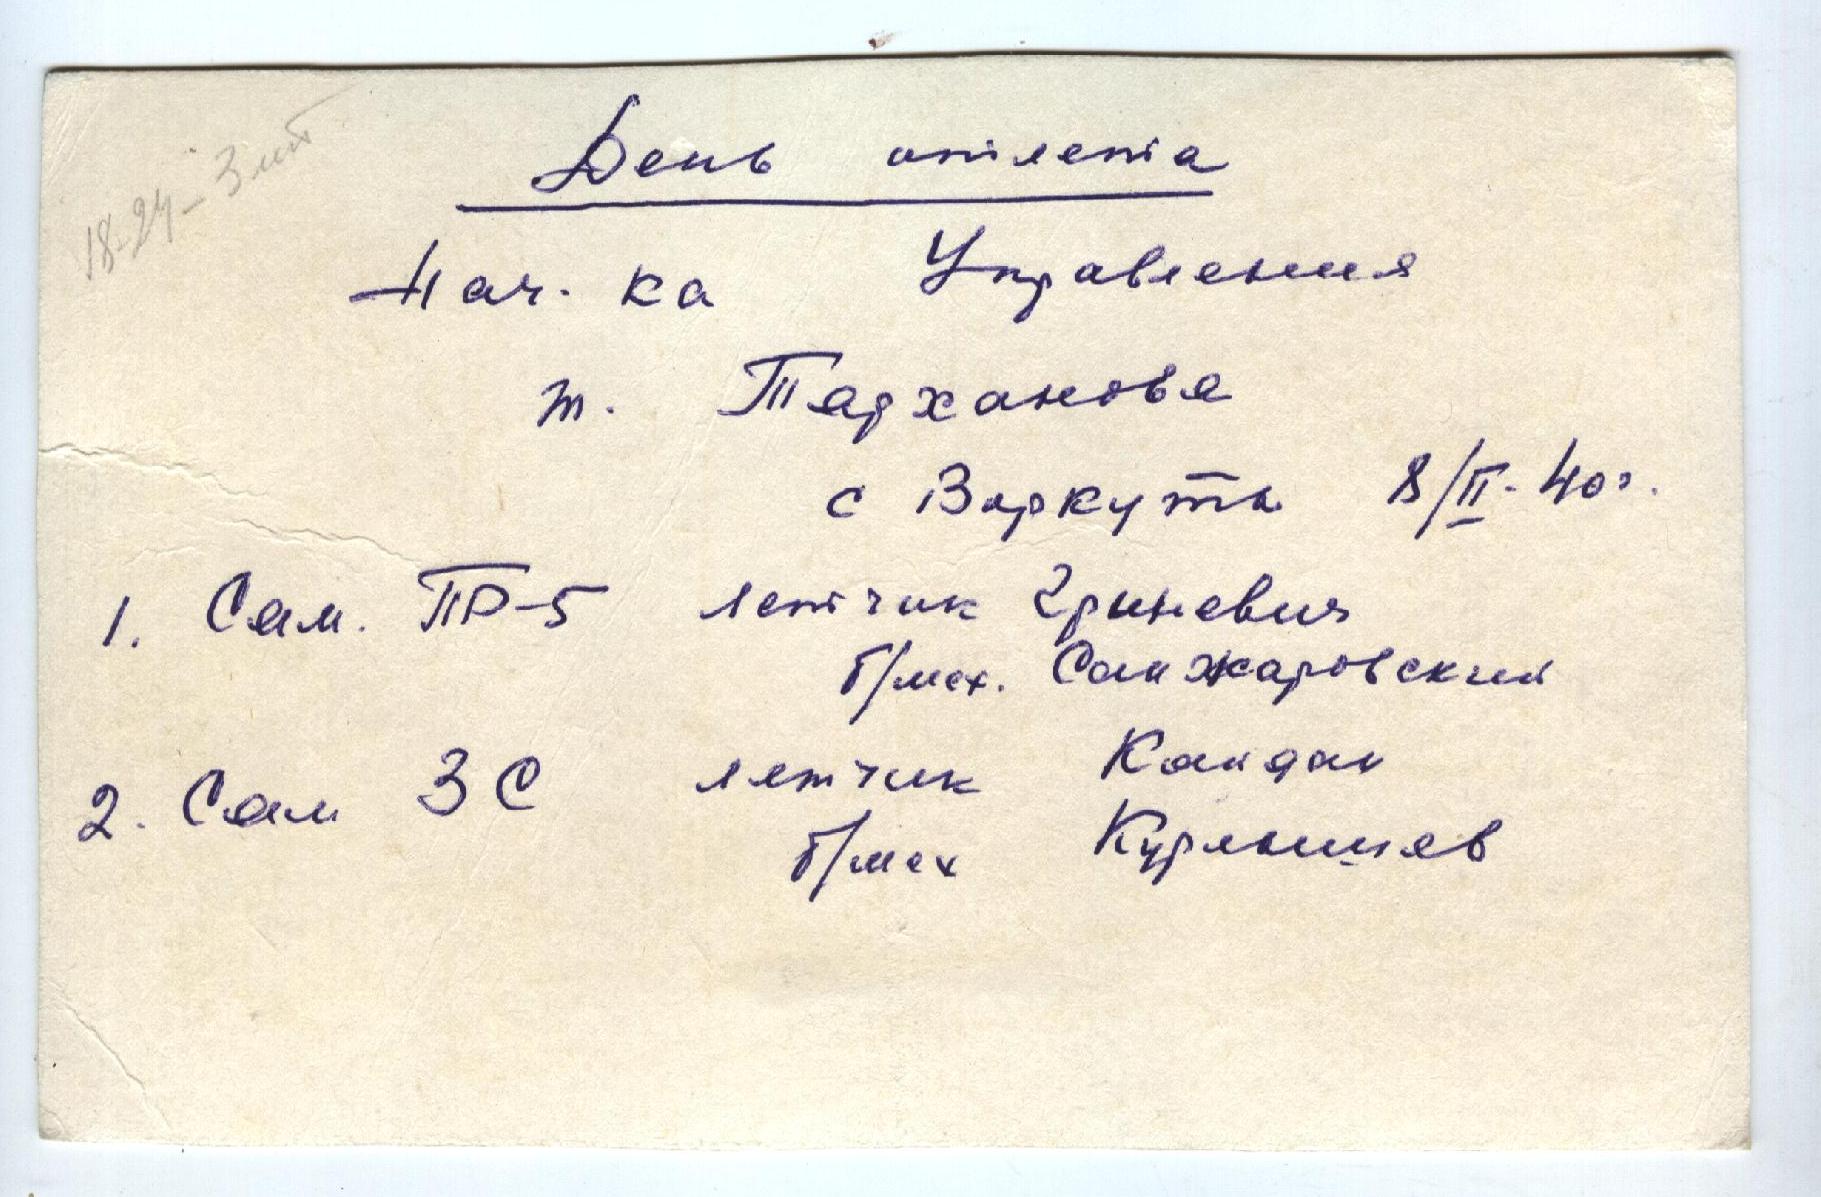 18-24-3 шт
День отлета
Нач-ка Управления
т. Тарханова
с Воркуты 8/II-40г.
1. Сам. ПР-5 летчик Гриневич
б/мех. Санжаровский
2. Сам 3 С летчик Кандан
б/мех Курлышев